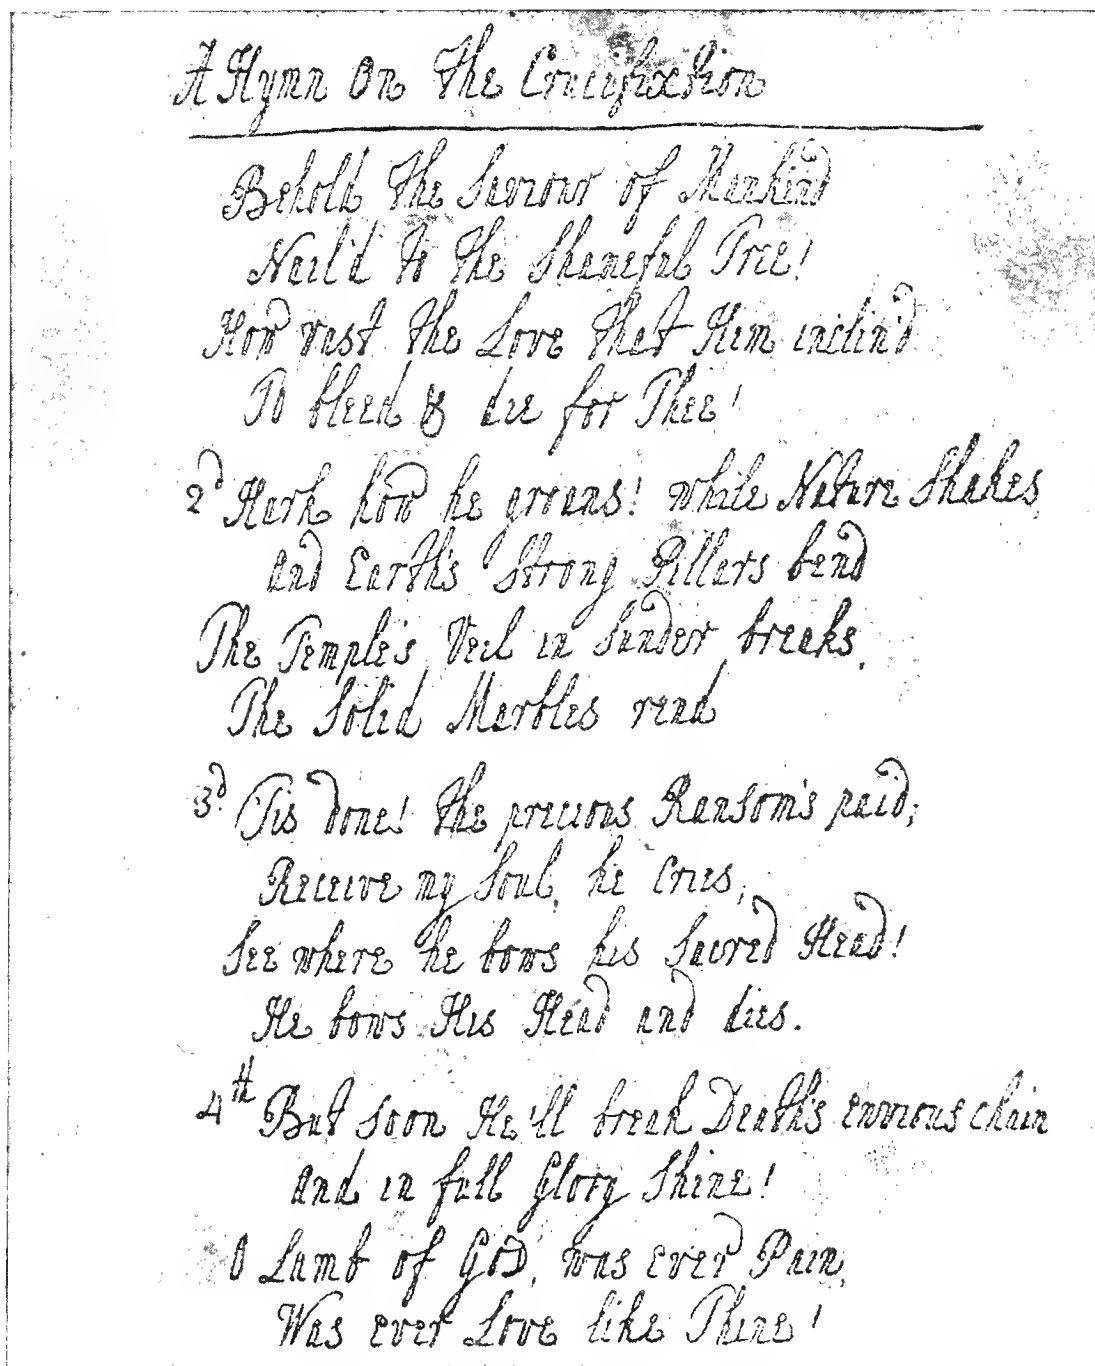 A Hymn On The Crucifixtion
Behold The Saviour of Mankind
Nail'd to the Shameful Tree!
How vast the Love that Him inclin'd
To bleed & die for Thee!
2d Hark how he groans! while Nature Shakes
and Earth's Strong Pillars bend
The Temple's Veil in Sunder breaks,
The Solid Marbles rend
3d. 'Tis done! the precious Ransom's paid;
Receive my Soul, he Cries,
See where he bows his Sacred Head!
He bows His Head and dies.
4th But soon He'll break Death's envious chain
and in full Glory Shine!
O Lamb of GoD, was ever Pain,
Was ever Love like Thine!